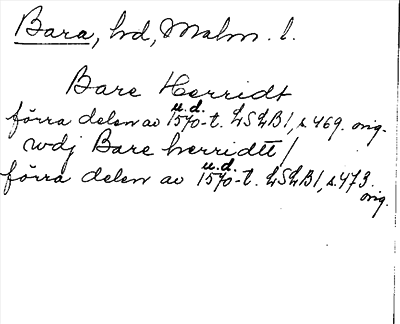 Bara, hd, Malm. l.
Bare Herridt
förra delen av u.d. 1570-t. LSLB1, s. 469. orig.
wdj Bare herridtt /
förra delen av u.d. 1570-t. LSLB1, s. 473. orig.